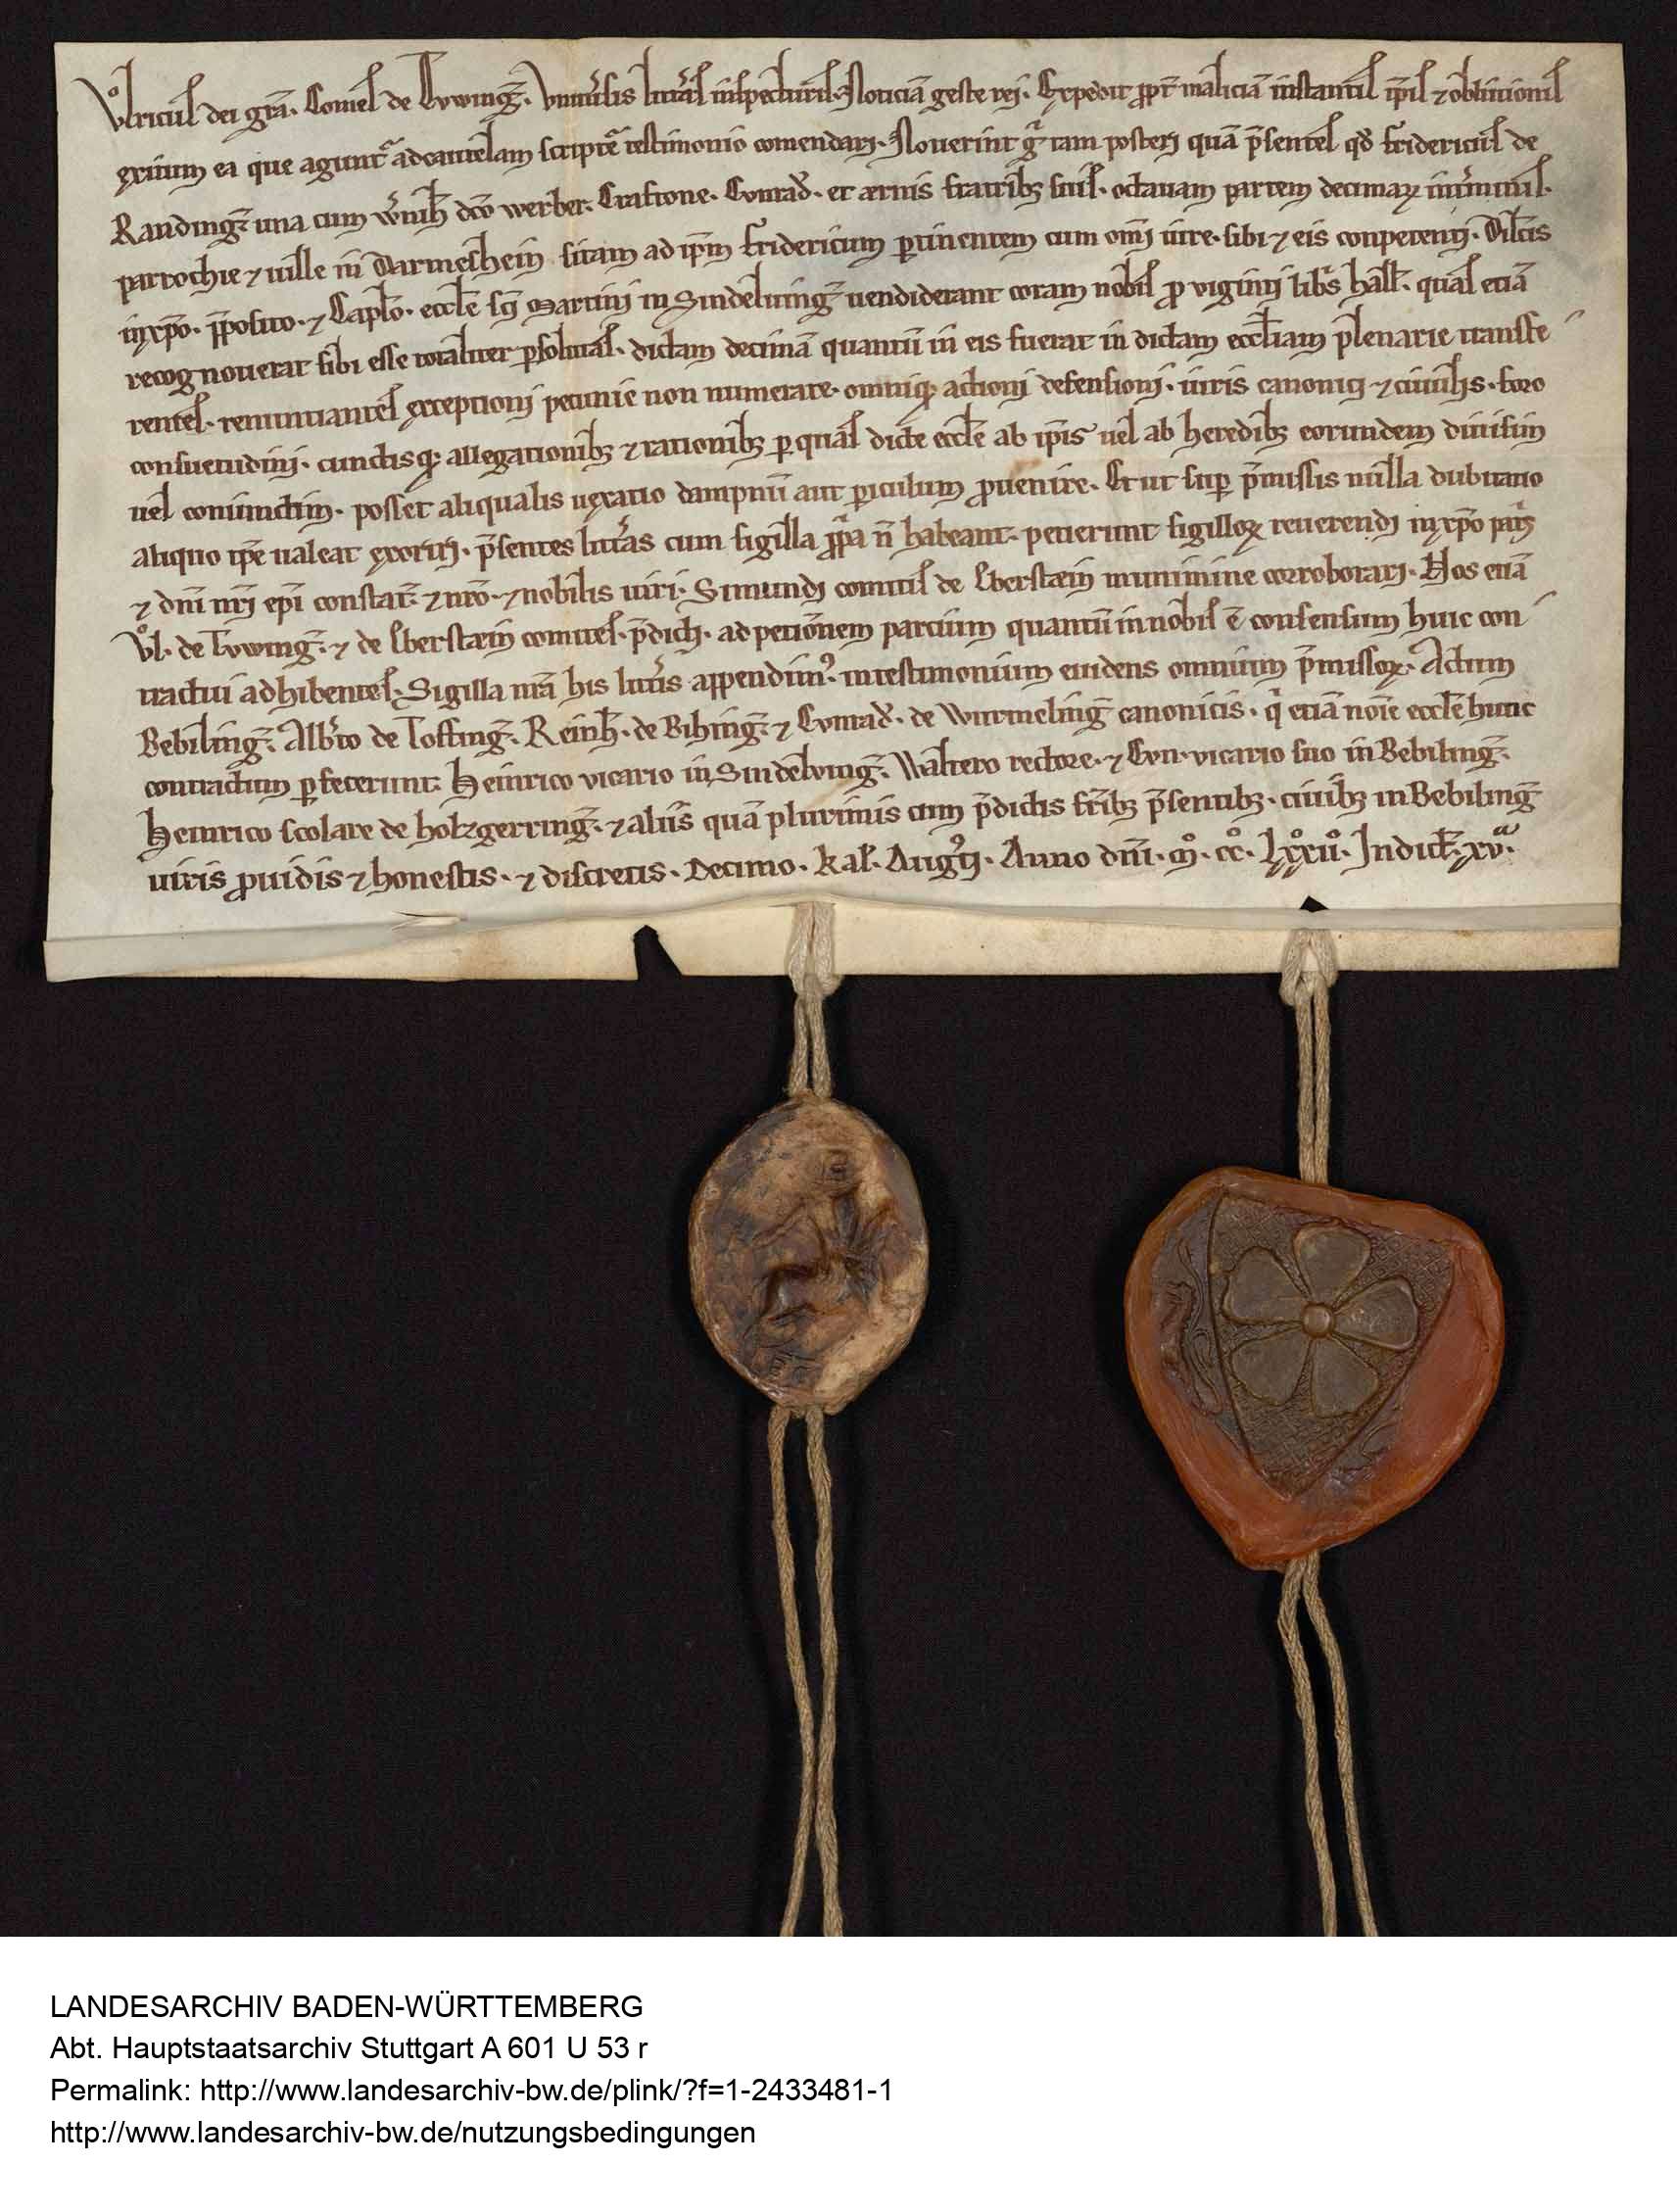 Vͦlricus dei gr̄a. Comes de Tvwinḡ. Vniu̓sis litt̓as inspecturis. Noticiā geste rei. Expedit ꝓpt̓ maliciā instantis tp̄is ⁊ obliuionis
exitium ea que agunt᷑ ad cautelam scripte testimonio comendari. Nouerint g̓ tam posteri quā p̄sentes qđ Fridericus de
Randinḡ una cum dc̄o werber. Craftone. Cvnrad̓. et arnis fratribꝫ suis. octauam partem decimaꝝ int̓minis
parrochie ⁊ uille in Darmeshein sitam ad ip̄m Fridericum ꝑtinentem cum om̄i iure. sibi ⁊ eis conpetenti. Dilc̄is
in xp̄o. p̄posito. ⁊ Capl̄o. eccl̄e sc̄i Martini in Sindeluinḡ uendiderant coram nobis ꝓ viginti libr̓ hall̄. quas etiā
recognouerat sibi esse totaliter ꝑsolutas. dictam decimā quantū in eis fuerat in dictam eccl̄iam plenarie transfe
rentes. renuntiantes exceptioni pecunie non numerate. omniqꝫ actioni defensioni. iuris canonici ⁊ ciuilis. foro
consuetudini. cunctisqꝫ allegationibꝫ ⁊ rationibꝫ ꝑ quas dicte eccl̄e ab ip̄is uel ab heredibꝫ eorundem diuisim
uel coniunctim. posset aliqualis uexatio dampnū aut ꝑiculum ꝓuenire. Et ut suꝑ p̄missis nulla dubitatio
aliquo tp̄e ualeat exoriri. p̄sentes litt̓as cum sigilla ꝓp̓a n̄ habeant. petierunt sigilloꝝ reuerendi in xp̄o pat̓s
⁊ dn̄i nr̄i ep̄i constat̄. ⁊ nr̄o. ⁊ nobilis uiri. Simundi comitis de Eberstæin munimine corroborari. Nos etiā
Vͦl. de Tvwinḡ. ⁊ de Eberstæin comites. p̄dicti. ad petic̄onem partium quantū in nobis ē consensum huic con
tractui adhibentes. Sigilla nr̄a his litt̓is appendim᷒. in testimonium euidens omnium p̄missoꝝ. Actum
Bebilinḡ. Alb̓to de Toffinḡ. Reinh̄. de Bihinḡ. ⁊ Cvnrad̓. de Wurmelinḡ canonicis. q̓ etiā no͞ie eccl̄e hunc
contractum ꝑfecerunt. Heinrico vicario in Sindelvinḡ. Waltero rectore. ⁊ Cvn. vicario suo in Bebilinḡ.
Heinrico scolare de holzgerrinḡ. ⁊ aliis quā plurimis cum p̄dictis fr̄ibꝫ p̄sentibꝫ. ciuibꝫ in Bebilinḡ
uiris ꝓuidis ⁊ honestis. ⁊ discretis. Decimo. kal̄. Aug᷒ti. Anno dn̄i. Mͦ. CCͦ. LXͦXIIͦ. Indict̄. xvͣ.
LANDESARCHIV BADEN-WÜRTTEMBERG
Abt. Hauptstaatsarchiv Stuttgart A 601 U 53 r
Permalink: http://www.landesarchiv-bw.de/plink/?f=1-2433481-1
http://www.landesarchiv-bw.de/nutzungsbedingungen